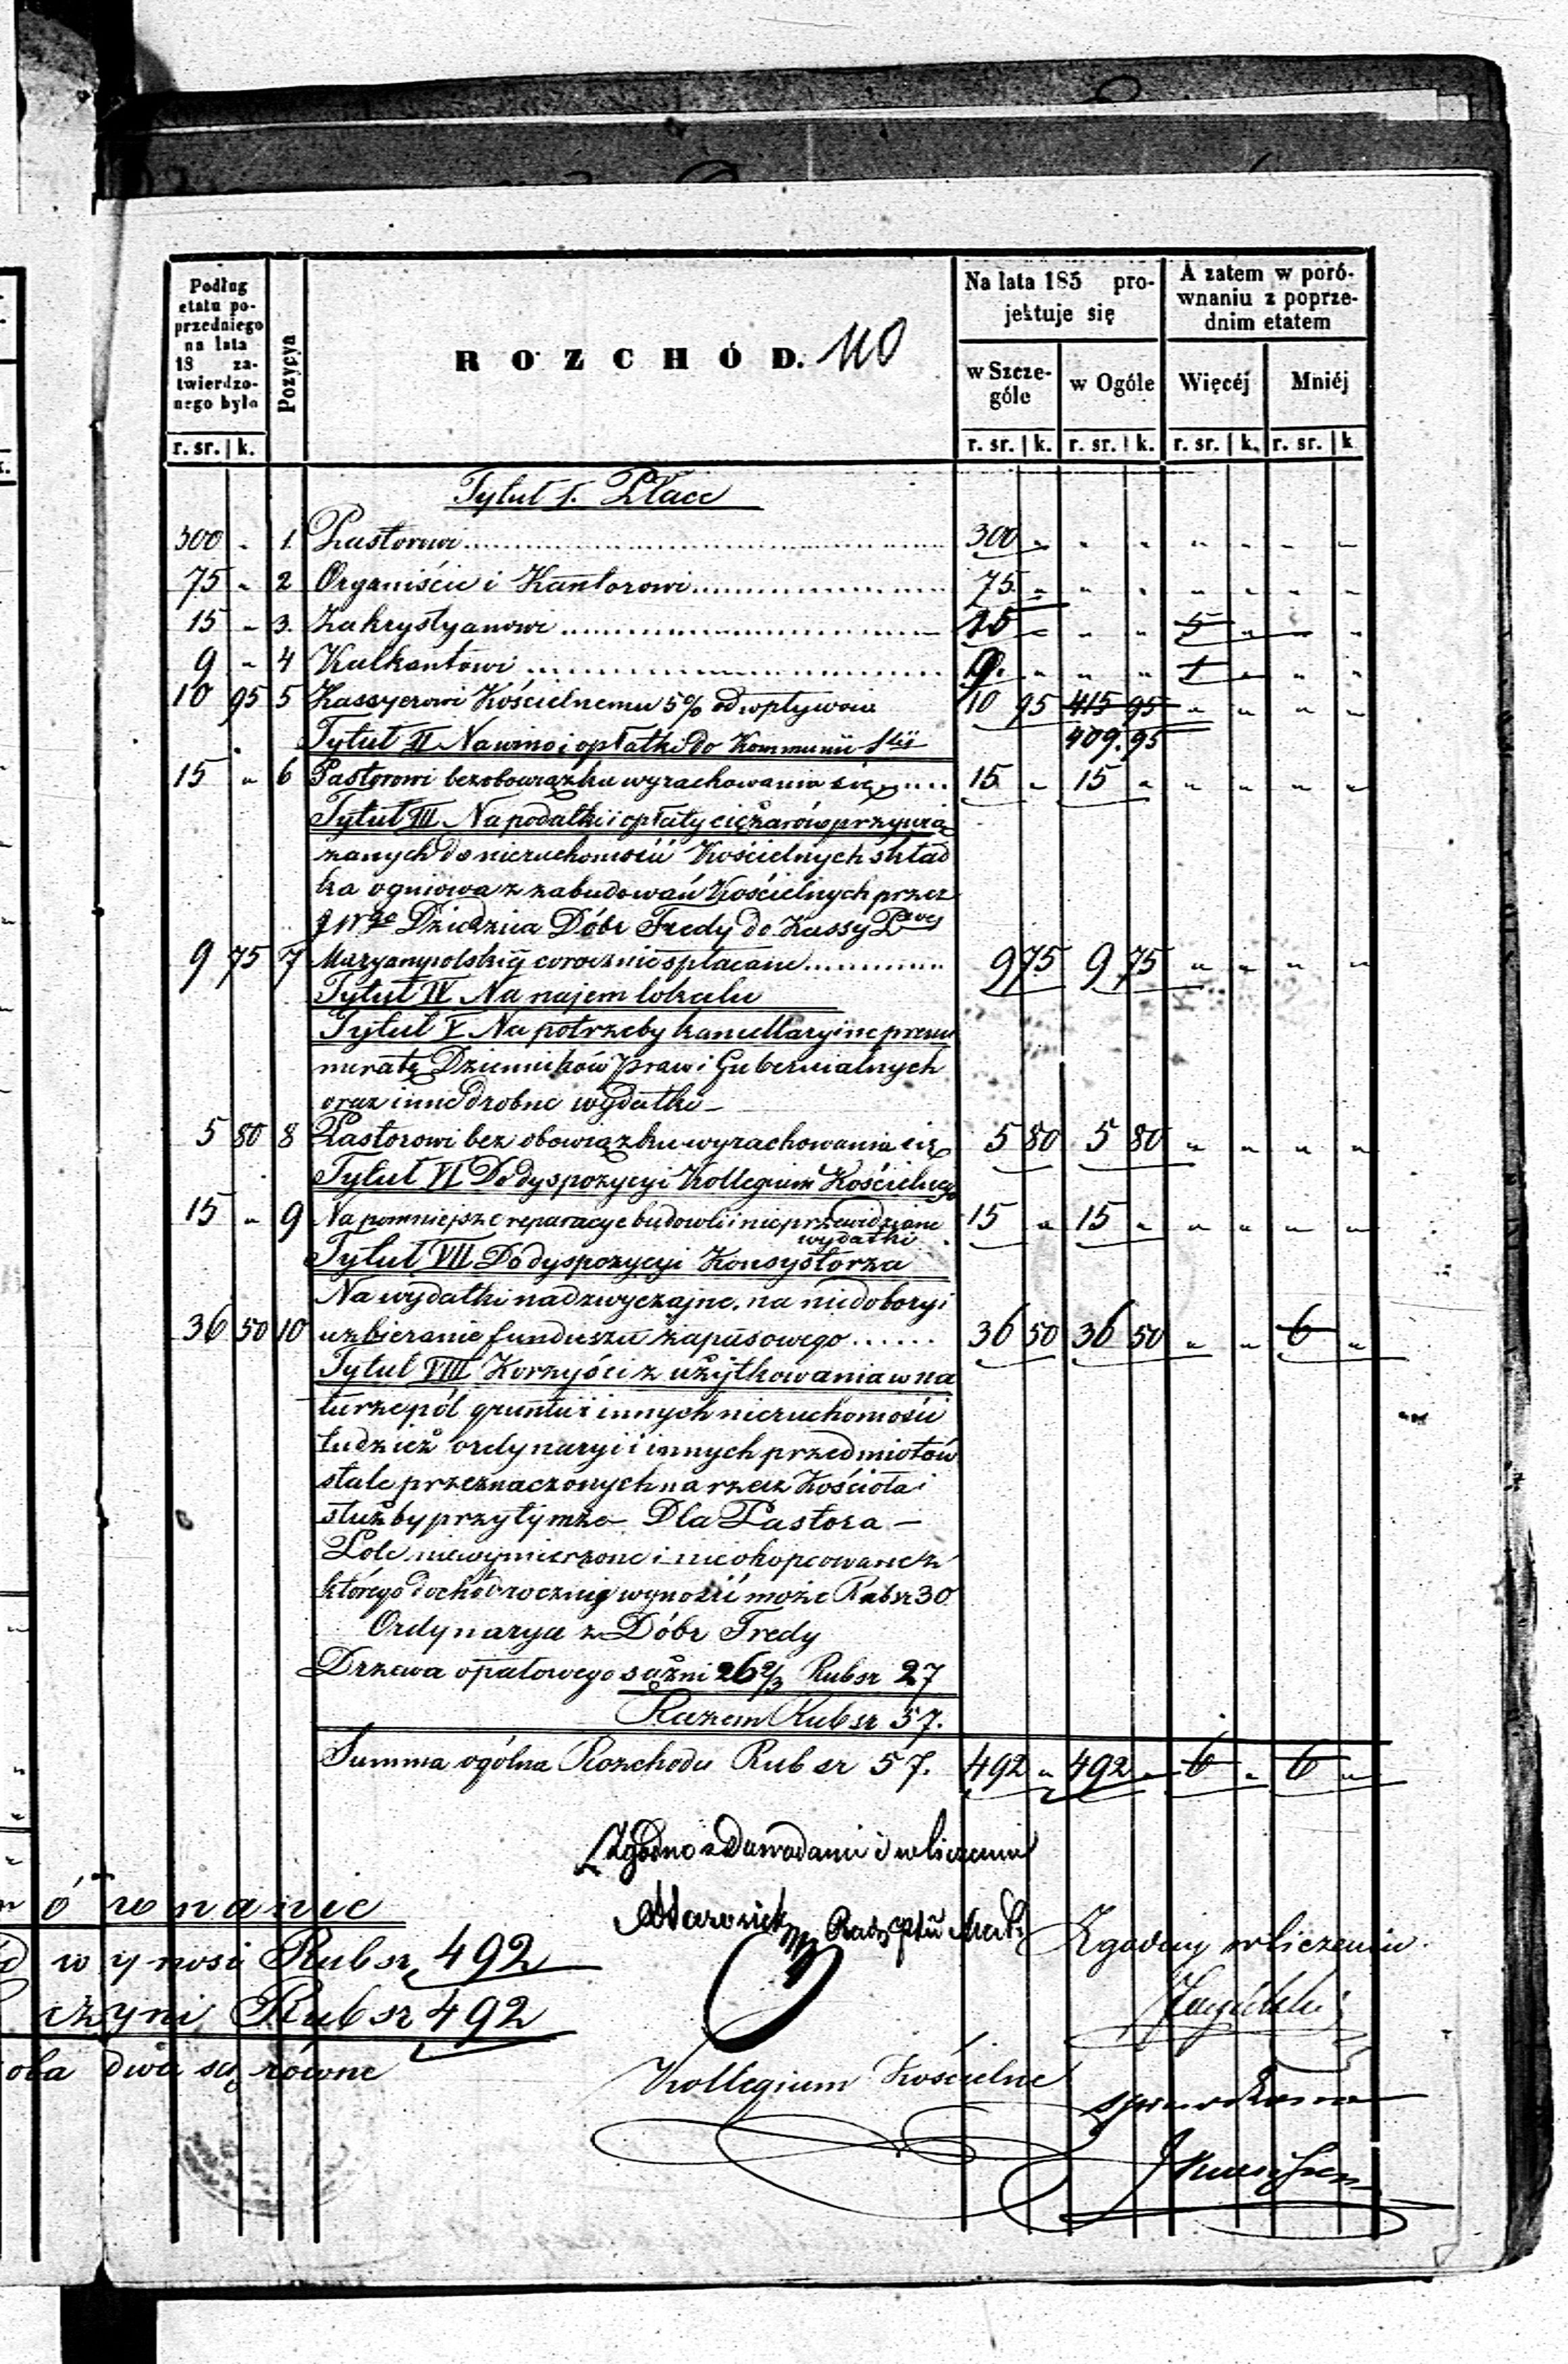 Podług etatu poprzedniego na lata 18 zatwierdzonego było
Pozycya
ROZCHÓD. 110
Na lata 185 projektuje się
A zatem w porównaniu z poprzednim etatem
w Szczególe
w Ogóle
Więcéj
Mniéj
r. sr. k. r. sr. k. r. sr. k. r. sr. k. r. sr. k
Tytuł I. Płace
300 " 1. Pastorowi 300 " " " " " " "
75 " 2 Organiście i Kantorowi 75 " " " " " " "
15 " 3. Zakrystyanowi 15 " " " 5 " " "
9 " 4 Kalkantowi 9. " " " 1 " " "
10 95 5 Kassyerowi Kościelnemu 5% od wpływów 10 95 415 95 " " " "
Tytuł II Na wino i opłatki do Kommunii 409.95
15 " 6 Pastorowi bez obowiązku wyrachowania się 15 " 15 " " " " "
Tytuł III Na podatki i opłaty ciężarów przywią
zanych do nieruchomości Kościelnych skład
ka ogniowa z zabudowań Kościelnych przez
Dziedzica Dóbr Fredy do Kassy
9 75 7 Maryampolskiej corocznie spłacane 9 75 9 75 " " " "
Tytuł IV Na najem lokalu
Tytuł V Na potrzeby kancellaryine prenu
meratę Dzienników praw i Gubernialnych
oraz inne drobne wydatki
5 80 8 Pastorowi bez obowiązku wyrachowania się 5 80 5 80 " " " "
Tytuł VI Do dyspozycyi Kollegium Kościelnego
15 " 9 Na pomniejsze reparacye budowli i nieprzewidziane 15 " 15 " " " " "
wydatki
Tytuł VII Do dyspozycyi Konsystorza
Na wydatki nadzwyczajne, na niedobory i
36 50 10 uzbieranie funduszu zapasowego 36 50 36 50 " " 6 "
Tytuł VIII Korzyści z użytkowania w na
turze pól gruntu i innych nieruchomości
tudzież ordynaryi i innych przedmiotów
stale przeznaczonych na rzecz Kościoła i
służby przy tymże Dla Pastora –
Pole niewymierzone i nieokopcowane z
którego dochód roczniej wynosić może Rubsr 30
Ordynarya z Dóbr Fredy
Drzewa opałowego sążni 26 2/3 Rubsr 27
Razem Rubsr 57.
Summa ogólna Rozchodu Rubsr 57. 492 " 492 " 6 " 6 "
Zgodno z Dowodami i wliczeniu
ó wnanie
wynosi Rubsr 492
czyni Rubsr 492
oba dwa są równe
Zgodny w liczeniu
Kollegium Kościelne
sprawdzono